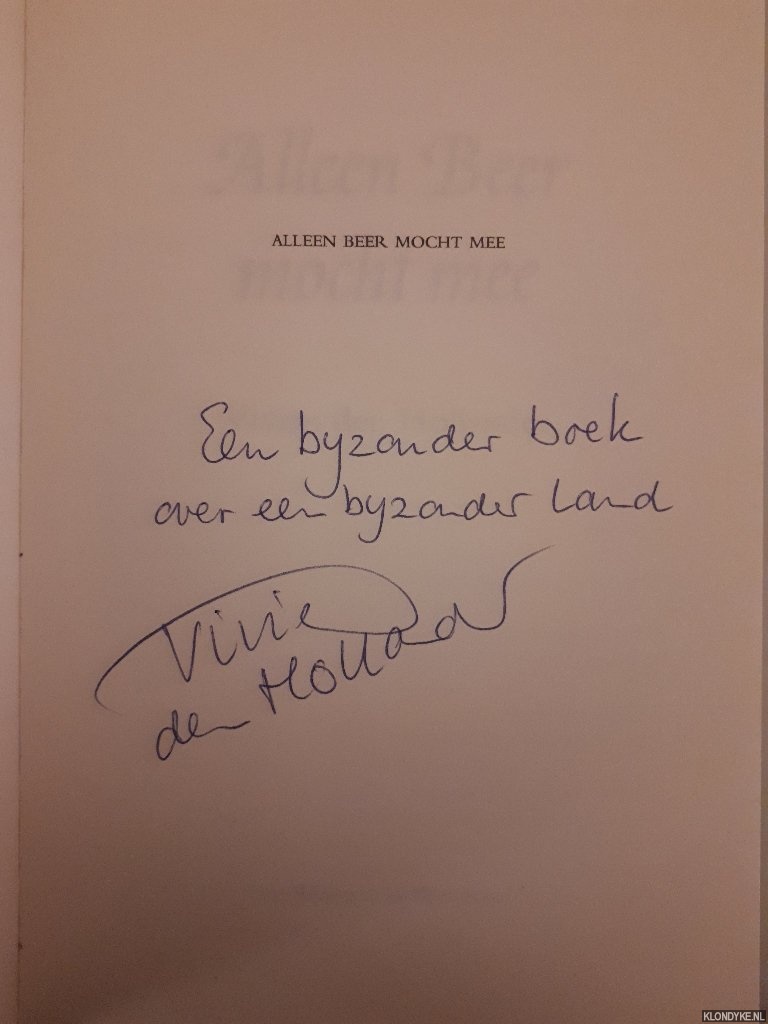 Alleen Beer
ALLEEN BEER MOCHT MEE
mocht mee
Een byzonder boek
over een byzonder land
Vivie
den Hollander
KLONDYKE.NL